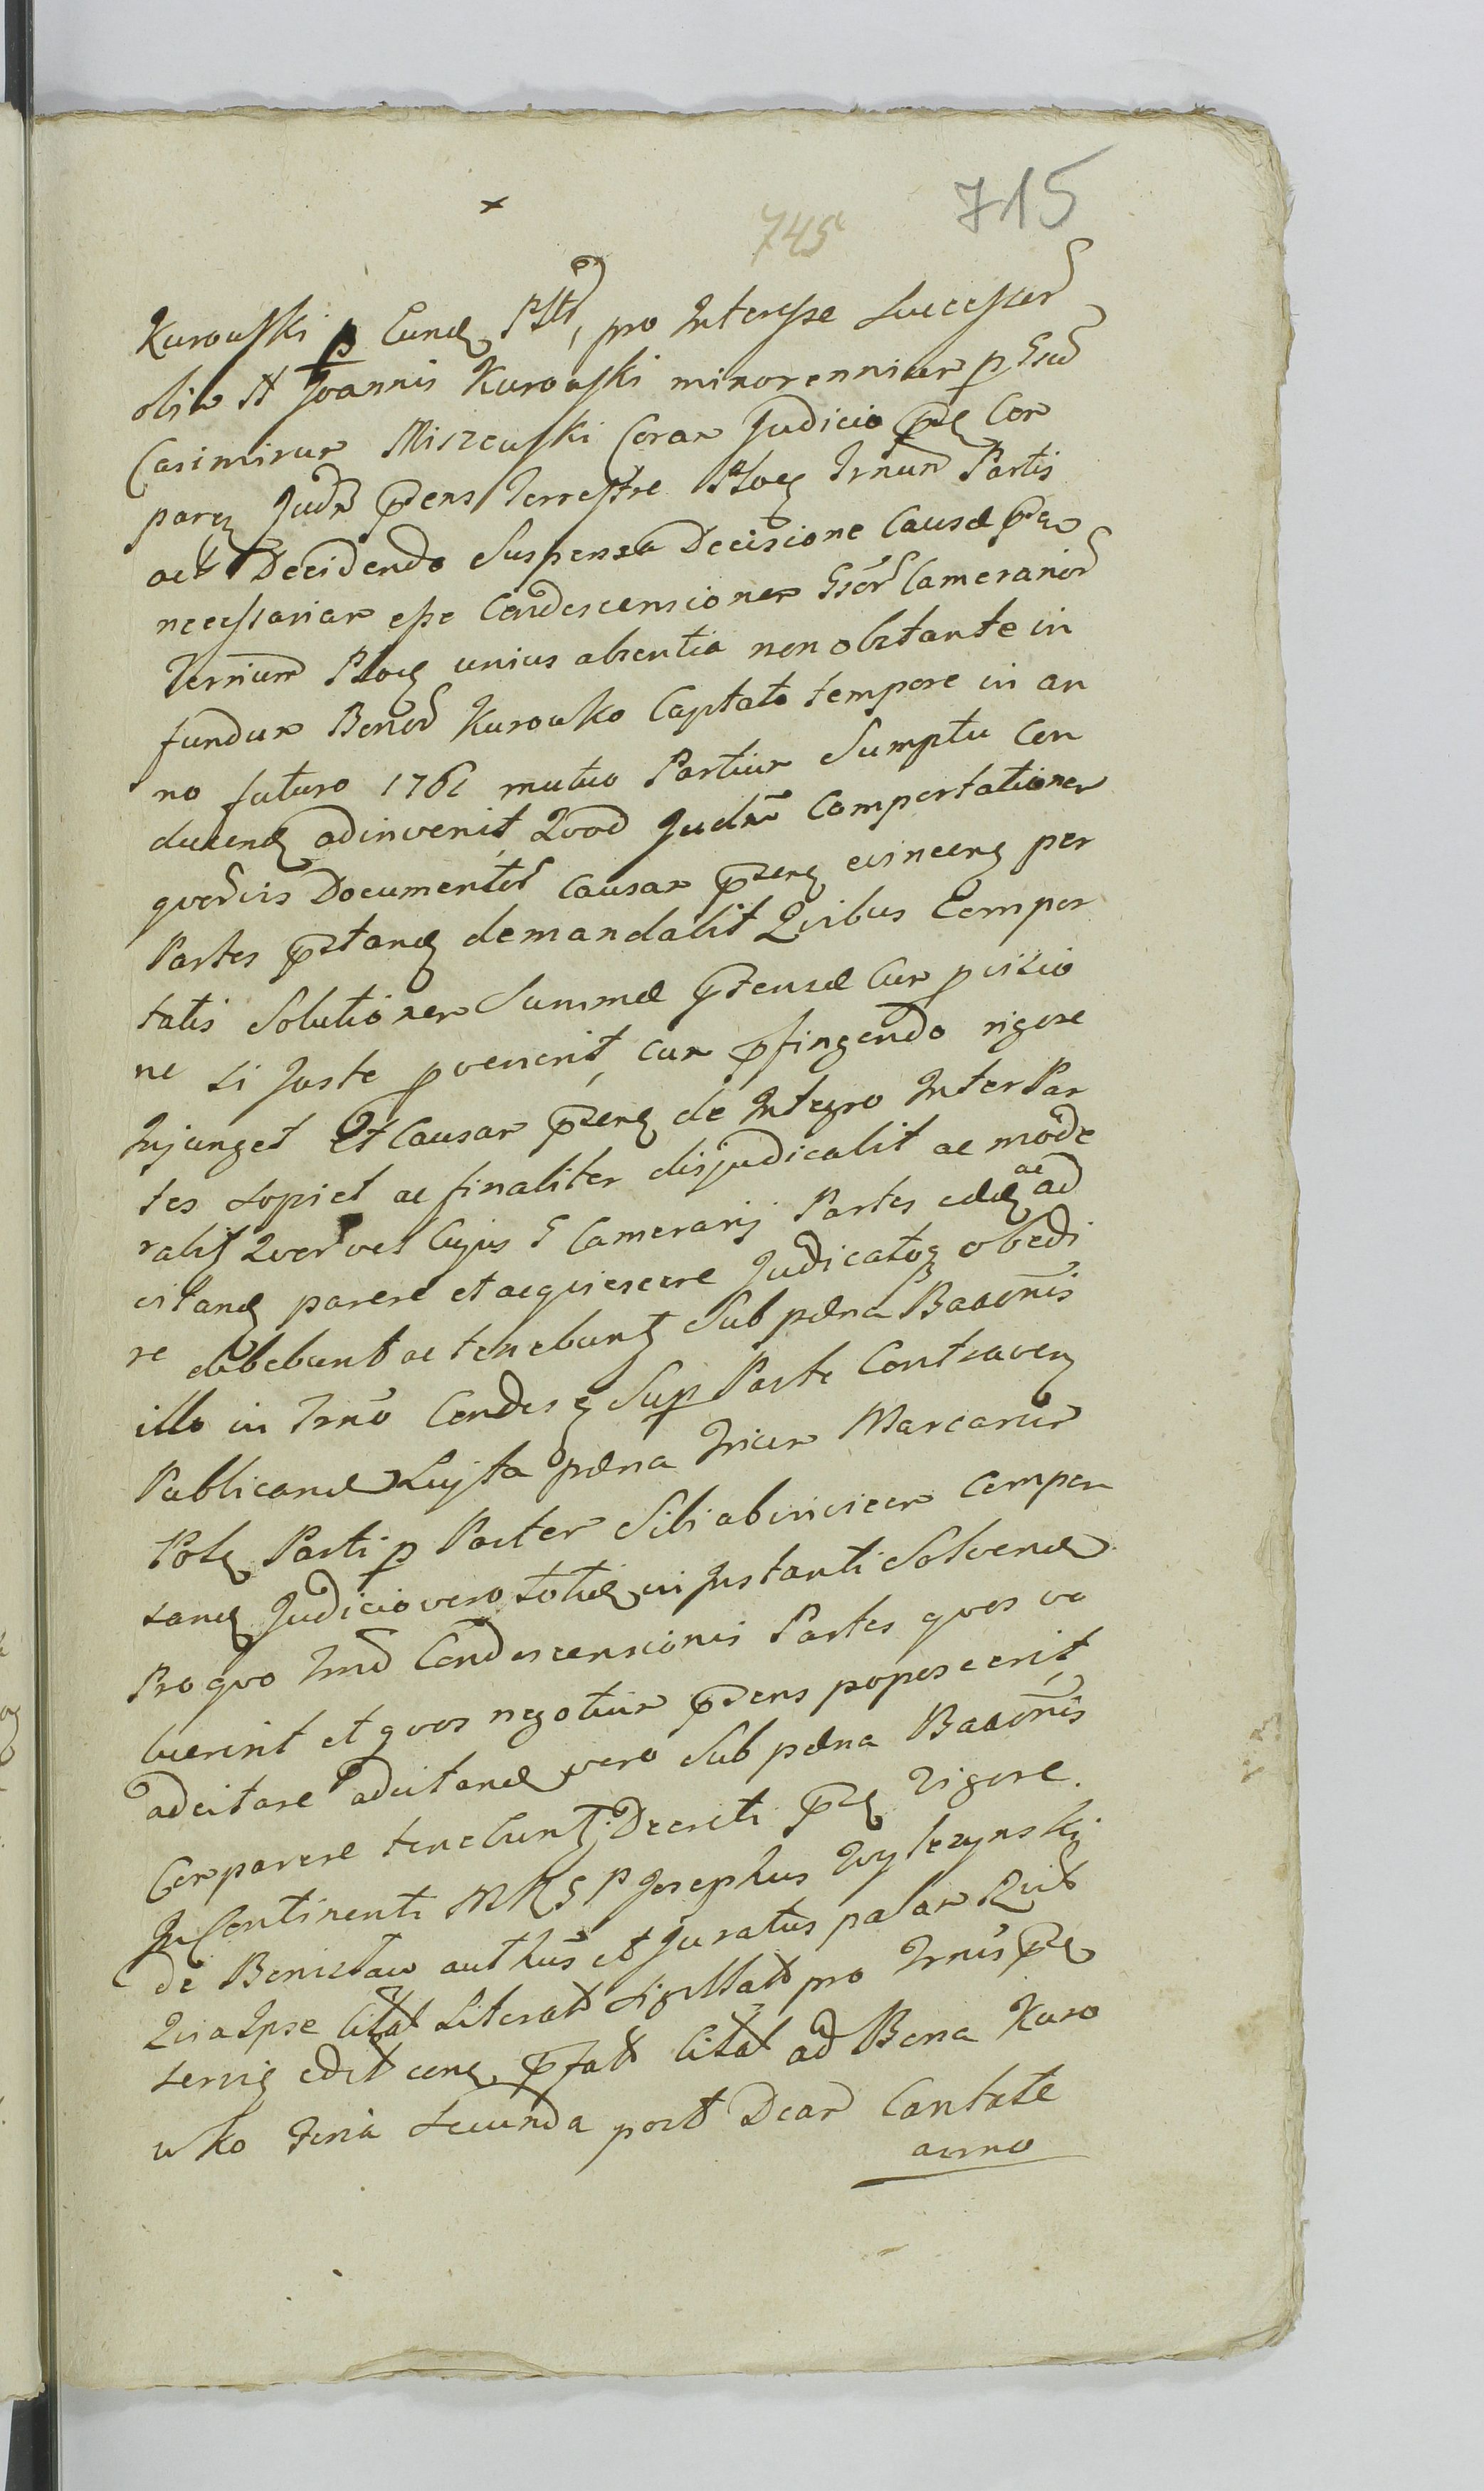 715
745
Kurowski p Eund Pltt, pro Interesse Successor
olim N Joannis Kurowski minorennium p Gsum
Casimirum Miszewski Coram Judicio prnti Com
paren Judm prsens Terrestre Plocen Trnum Partis
act Decidendo Suspensa Decisione Causæ prntis
necessariam esse Condescensionem Gsor Camerarior
Terrium Plocen unius absentia non obstante in
fundum Bonor Kurowko Captato tempore in an
no futuro 1761 mutuo Partium Sumptu Con
ducend adinvenit, Quod Judm Comportationem
quorvis Documentor Causam prsen evincen per
Partes prstand demandabit Quibus Compor
tatis Solutionem Summæ prtensæ Cum pvisio
ne si Juste pvenerit, cum prfingendo rigore
Injunget Et Causam prsen de Integro Inter Par
tes sopiet ac finaliter disjudicabit ac mode
rabit Quor vel Cujus G Camerarij Partes eæd ac ad
citand parere et acquiescere Judicatoq obedi
re debebunt ac tenebunt Sub pæna Banonis
illo in Trno Condesc Sup Parte Contraven
Publicand Luita pæna Trium Marcarum
Pol Parti p Partem Sibi abinvicem Compen
sand Judicio vero totid in Instanti Solvend
Pro quo Trno Condescensionis Partes quos vo
luerint et quos negotium prsens poposcerit
adcitare adcitand vero Sub pæna Banonis
Comparere tenebunt Decreti prntis vigore.
In Continenti MRG P Josephus Wylezynski
de Benislaw authus et Juratus palam Recit
Quia Ipse Citat Literat Sigillat pro Trnis prnti
servien edit cong prfatt Citat ad Bona Kuro
wko Feria Secunda post Dcam Cantate
anno